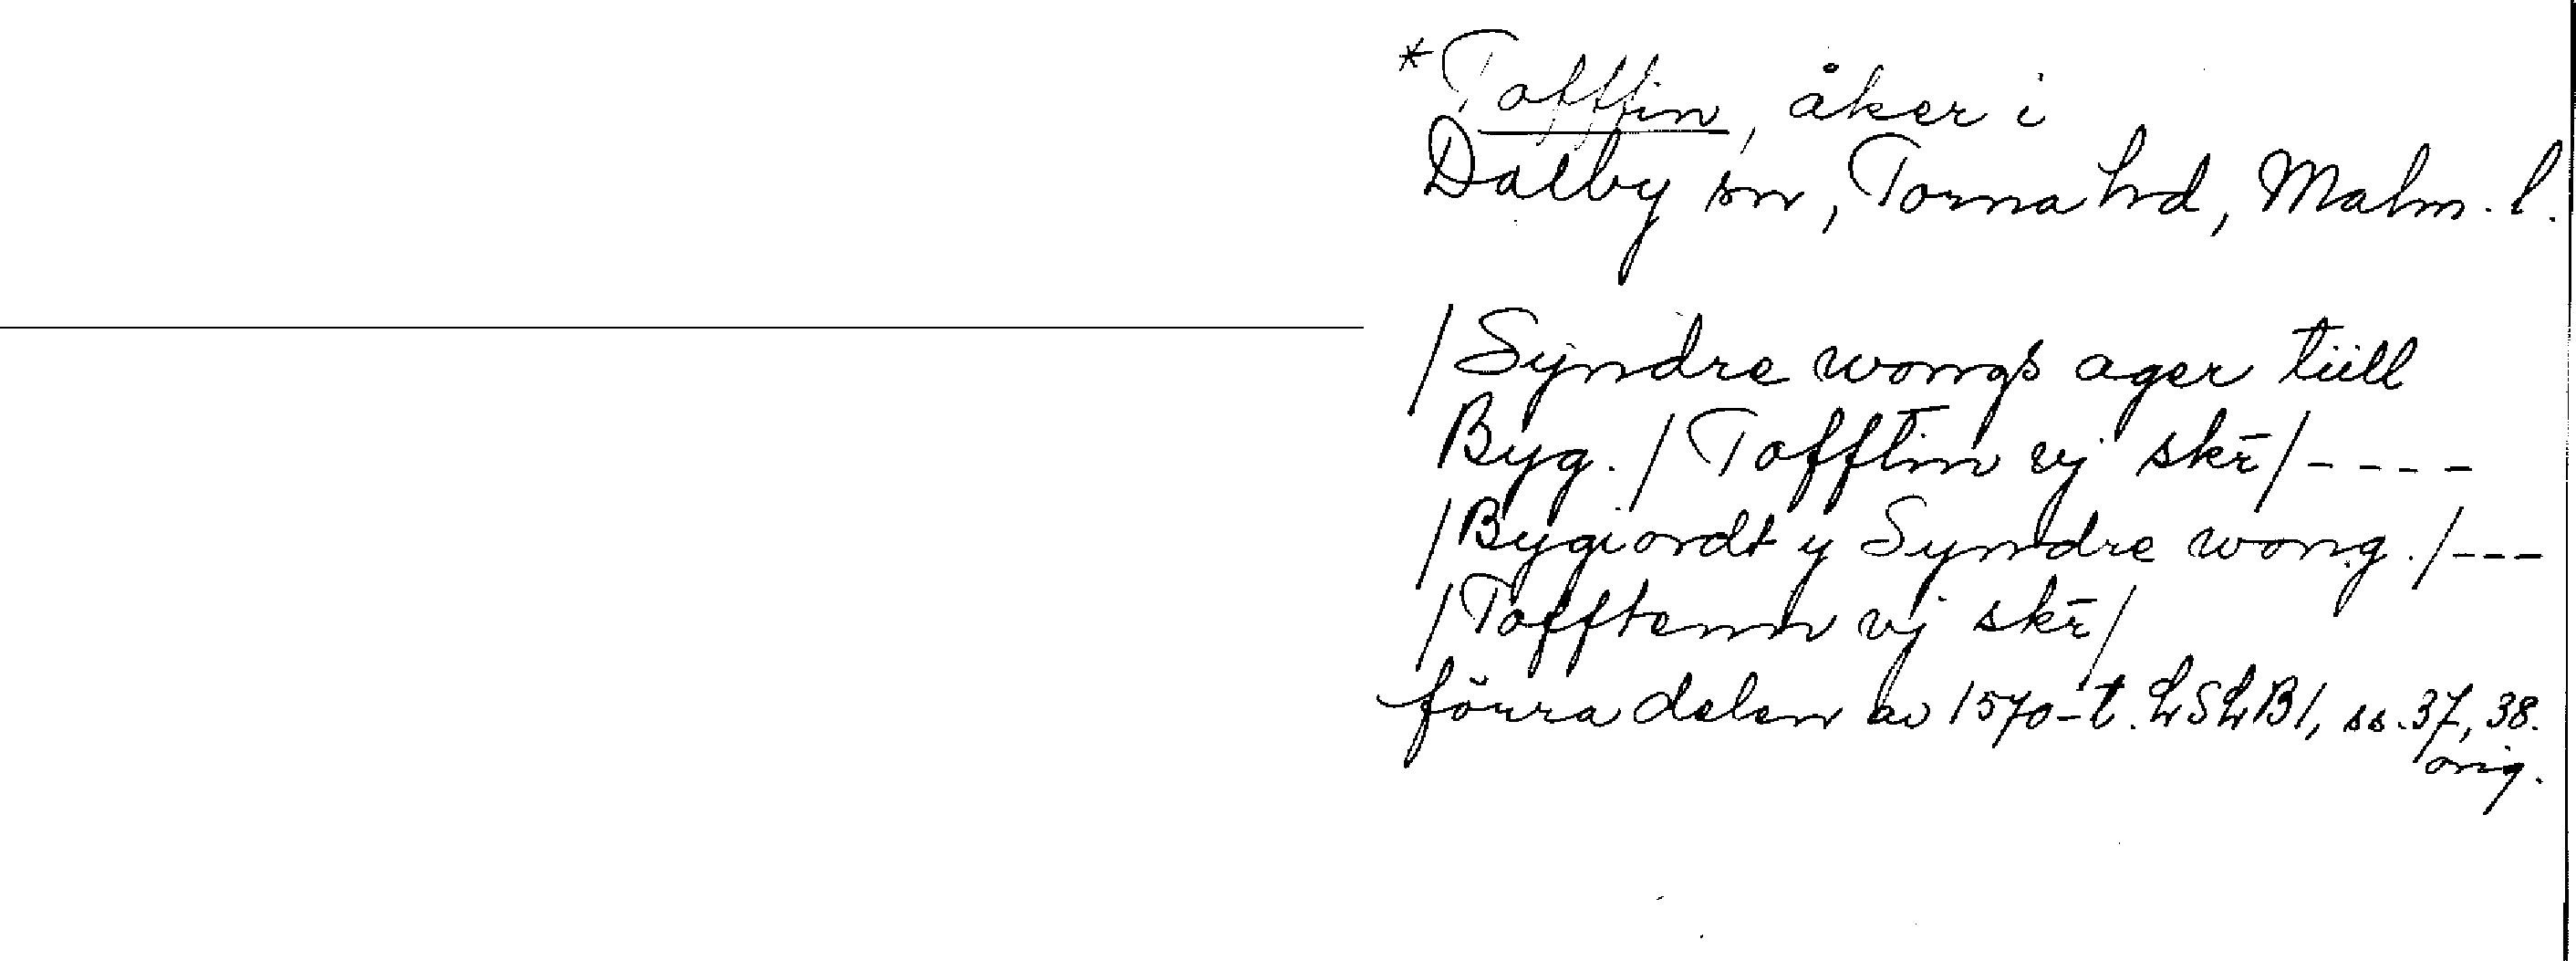 *Tofftin, åker i
Dalby sn, Torna hd, Malm. l.
/Syndre wongs ager tiill
Byg./Tofftin vj skr̄/----
/Bygiordt y Syndre wong./---
/Tofftenn vj skr̄/
förra delen av 1570-t. LSLB1, ss. 37, 38.
orig.